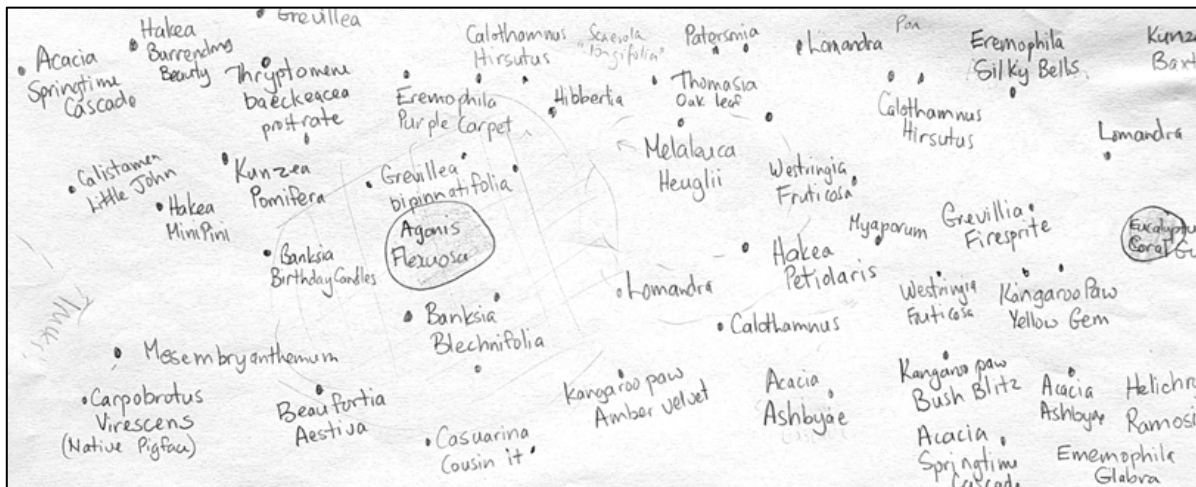 Grevillea
Hakea
Burrendong
Beauty
Acacia
Springtime
Cascade
Thryptomene
baeckeacea
prostrate
Calothamnus
Hirsutus
Scaevola
"longifolia"
Patersonia
Lomandra
Poa
Eremophila
Silky Bells
Kunze
Baxt
Eremophila
Purple Carpet
Hibbertia
Thomasia
Oak leaf
Calothamnus
Hirsutus
Lomandra
Calistemen
Little John
Hakea
MiniPini
Kunzea
Pomifera
Grevillea
bipinnatifolia
Melaleuca
Heuglii
Westringia
Fruticosa
Agonis
Flexuosa
Banksia
Birthday Candles
Myaporum
Grevillia
Firesprite
Eucalyptu
Coral Gu
Hakea
Petiolaris
Lomandra
Westringia
Fruticosa
Kangaroo Paw
Yellow Gem
Banksia
Blechnifolia
Calothamnus
Mesembryanthemum
Carpobrotus
Virescens
(Native Pigface)
Beaufortia
Aestiva
Casuarina
Cousin it
Kangaroo paw
Amber Velvet
Acacia
Ashbyae
Kangaroo paw
Bush Blitz
Acacia
Ashbyae
Helichr
Ramosi
Acacia
Springtime
Cascade
Ememophila
Glabra